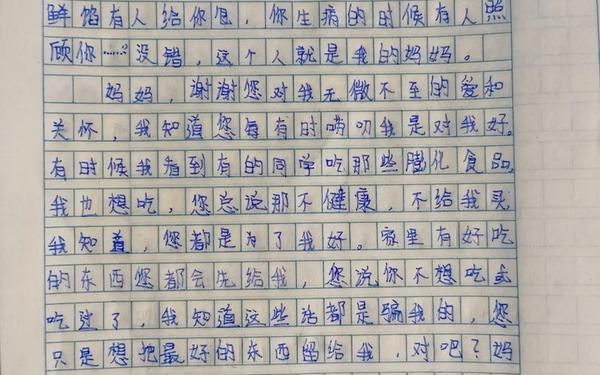 鲜馅有人给你包，你生病的时候有人照
顾你……没错，这个人就是我的妈妈。
妈妈，谢谢您对我无微不至的爱和
关怀，我知道您每有时唠叨我是对我好。
有时候我看到有的同学吃那些膨化食品，
我也想吃，您总说那不健康，不给我买
我知道，您都是为了我好。家里有好吃
的东西您都会先给我，您说你不想吃或
吃过了，我知道这些话都是骗我的，您
只是想把最好的东西留给我，对吧？妈